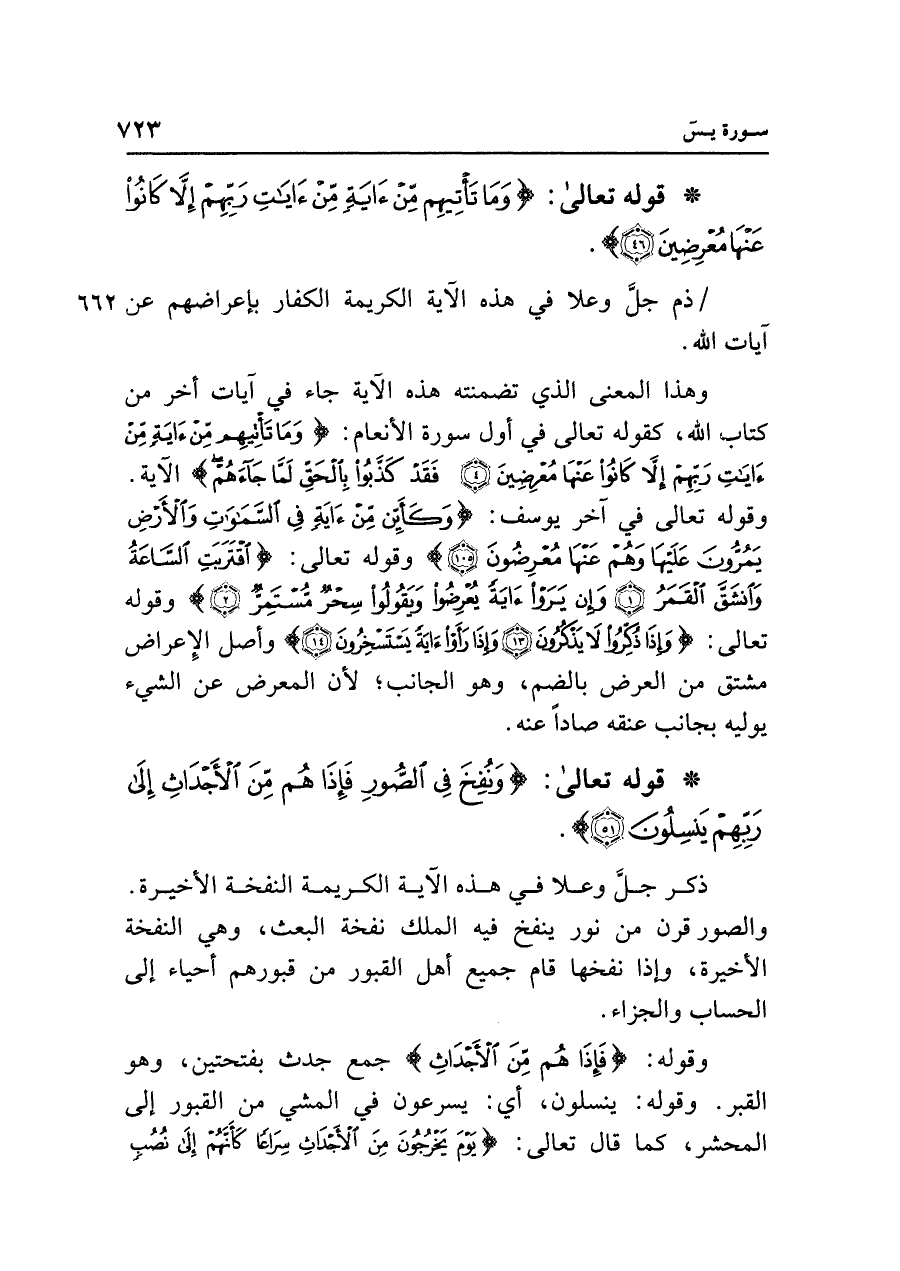 سورة يسٓ ٧٢٣
* قوله تعالىٰ: ﴿وَمَا تَأْتِيهِم مِّنْ ءَايَةٍ مِّنْ ءَايَٰتِ رَبِّهِمْ إِلَّا كَانُوا۟
عَنْهَا مُعْرِضِينَ ۝٤٦﴾.
/ ذم جلَّ وعلا في هذه الآية الكريمة الكفار بإعراضهم عن ٦٦٢
آيات الله.
وهذا المعنى الذي تضمنته هذه الآية جاء في آيات أخر من
كتاب الله، كقوله تعالى في أول سورة الأنعام: ﴿وَمَا تَأْتِيهِم مِّنْ ءَايَةٍ مِّنْ
ءَايَٰتِ رَبِّهِمْ إِلَّا كَانُوا۟ عَنْهَا مُعْرِضِينَ ۝٤ فَقَدْ كَذَّبُوا۟ بِٱلْحَقِّ لَمَّا جَآءَهُمْۖ﴾ الآية.
وقوله تعالى في آخر يوسف: ﴿وَكَأَيِّن مِّنْ ءَايَةٍ فِى ٱلسَّمَٰوَٰتِ وَٱلْأَرْضِ
يَمُرُّونَ عَلَيْهَا وَهُمْ عَنْهَا مُعْرِضُونَ ۝١٠٥﴾ وقوله تعالى: ﴿ٱقْتَرَبَتِ ٱلسَّاعَةُ
وَٱنشَقَّ ٱلْقَمَرُ ۝١ وَإِن يَرَوْا۟ ءَايَةً يُعْرِضُوا۟ وَيَقُولُوا۟ سِحْرٌ مُّسْتَمِرٌّ ۝٢﴾ وقوله
تعالى: ﴿وَإِذَا ذُكِّرُوا۟ لَا يَذْكُرُونَ ۝١٣ وَإِذَا رَأَوْا۟ ءَايَةً يَسْتَسْخِرُونَ ۝١٤﴾ وأصل الإِعراض
مشتق من العرض بالضم، وهو الجانب؛ لأن المعرض عن الشيء
يوليه بجانب عنقه صاداً عنه.
* قوله تعالىٰ: ﴿وَنُفِخَ فِى ٱلصُّورِ فَإِذَا هُم مِّنَ ٱلْأَجْدَاثِ إِلَىٰ
رَبِّهِمْ يَنسِلُونَ ۝٥١﴾.
ذكر جلَّ وعلا في هذه الآية الكريمة النفخة الأخيرة.
والصور قرن من نور ينفخ فيه الملك نفخة البعث، وهي النفخة
الأخيرة، وإذا نفخها قام جميع أهل القبور من قبورهم أحياء إلى
الحساب والجزاء.
وقوله: ﴿فَإِذَا هُم مِّنَ ٱلْأَجْدَاثِ﴾ جمع جدث بفتحتين، وهو
القبر. وقوله: ينسلون، أي: يسرعون في المشي من القبور إلى
المحشر، كما قال تعالى: ﴿يَوْمَ يَخْرُجُونَ مِنَ ٱلْأَجْدَاثِ سِرَاعًا كَأَنَّهُمْ إِلَىٰ نُصُبٍ